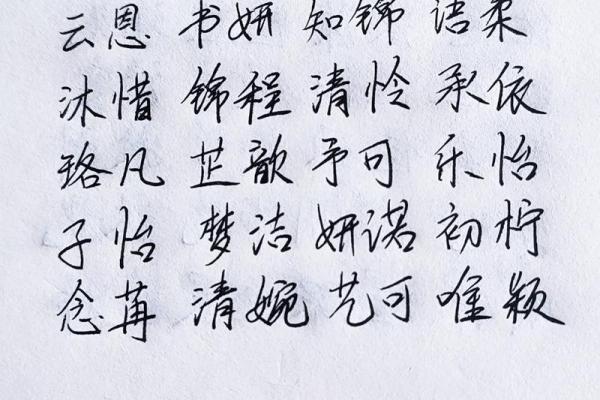 云恩 书妍 知锦 语柔
沐惜 锦程 清怜 承依
珞凡 芷歆 予可 乐怡
子怡 梦洁 妍诺 初柠
念苒 清婉 艺可 唯颖